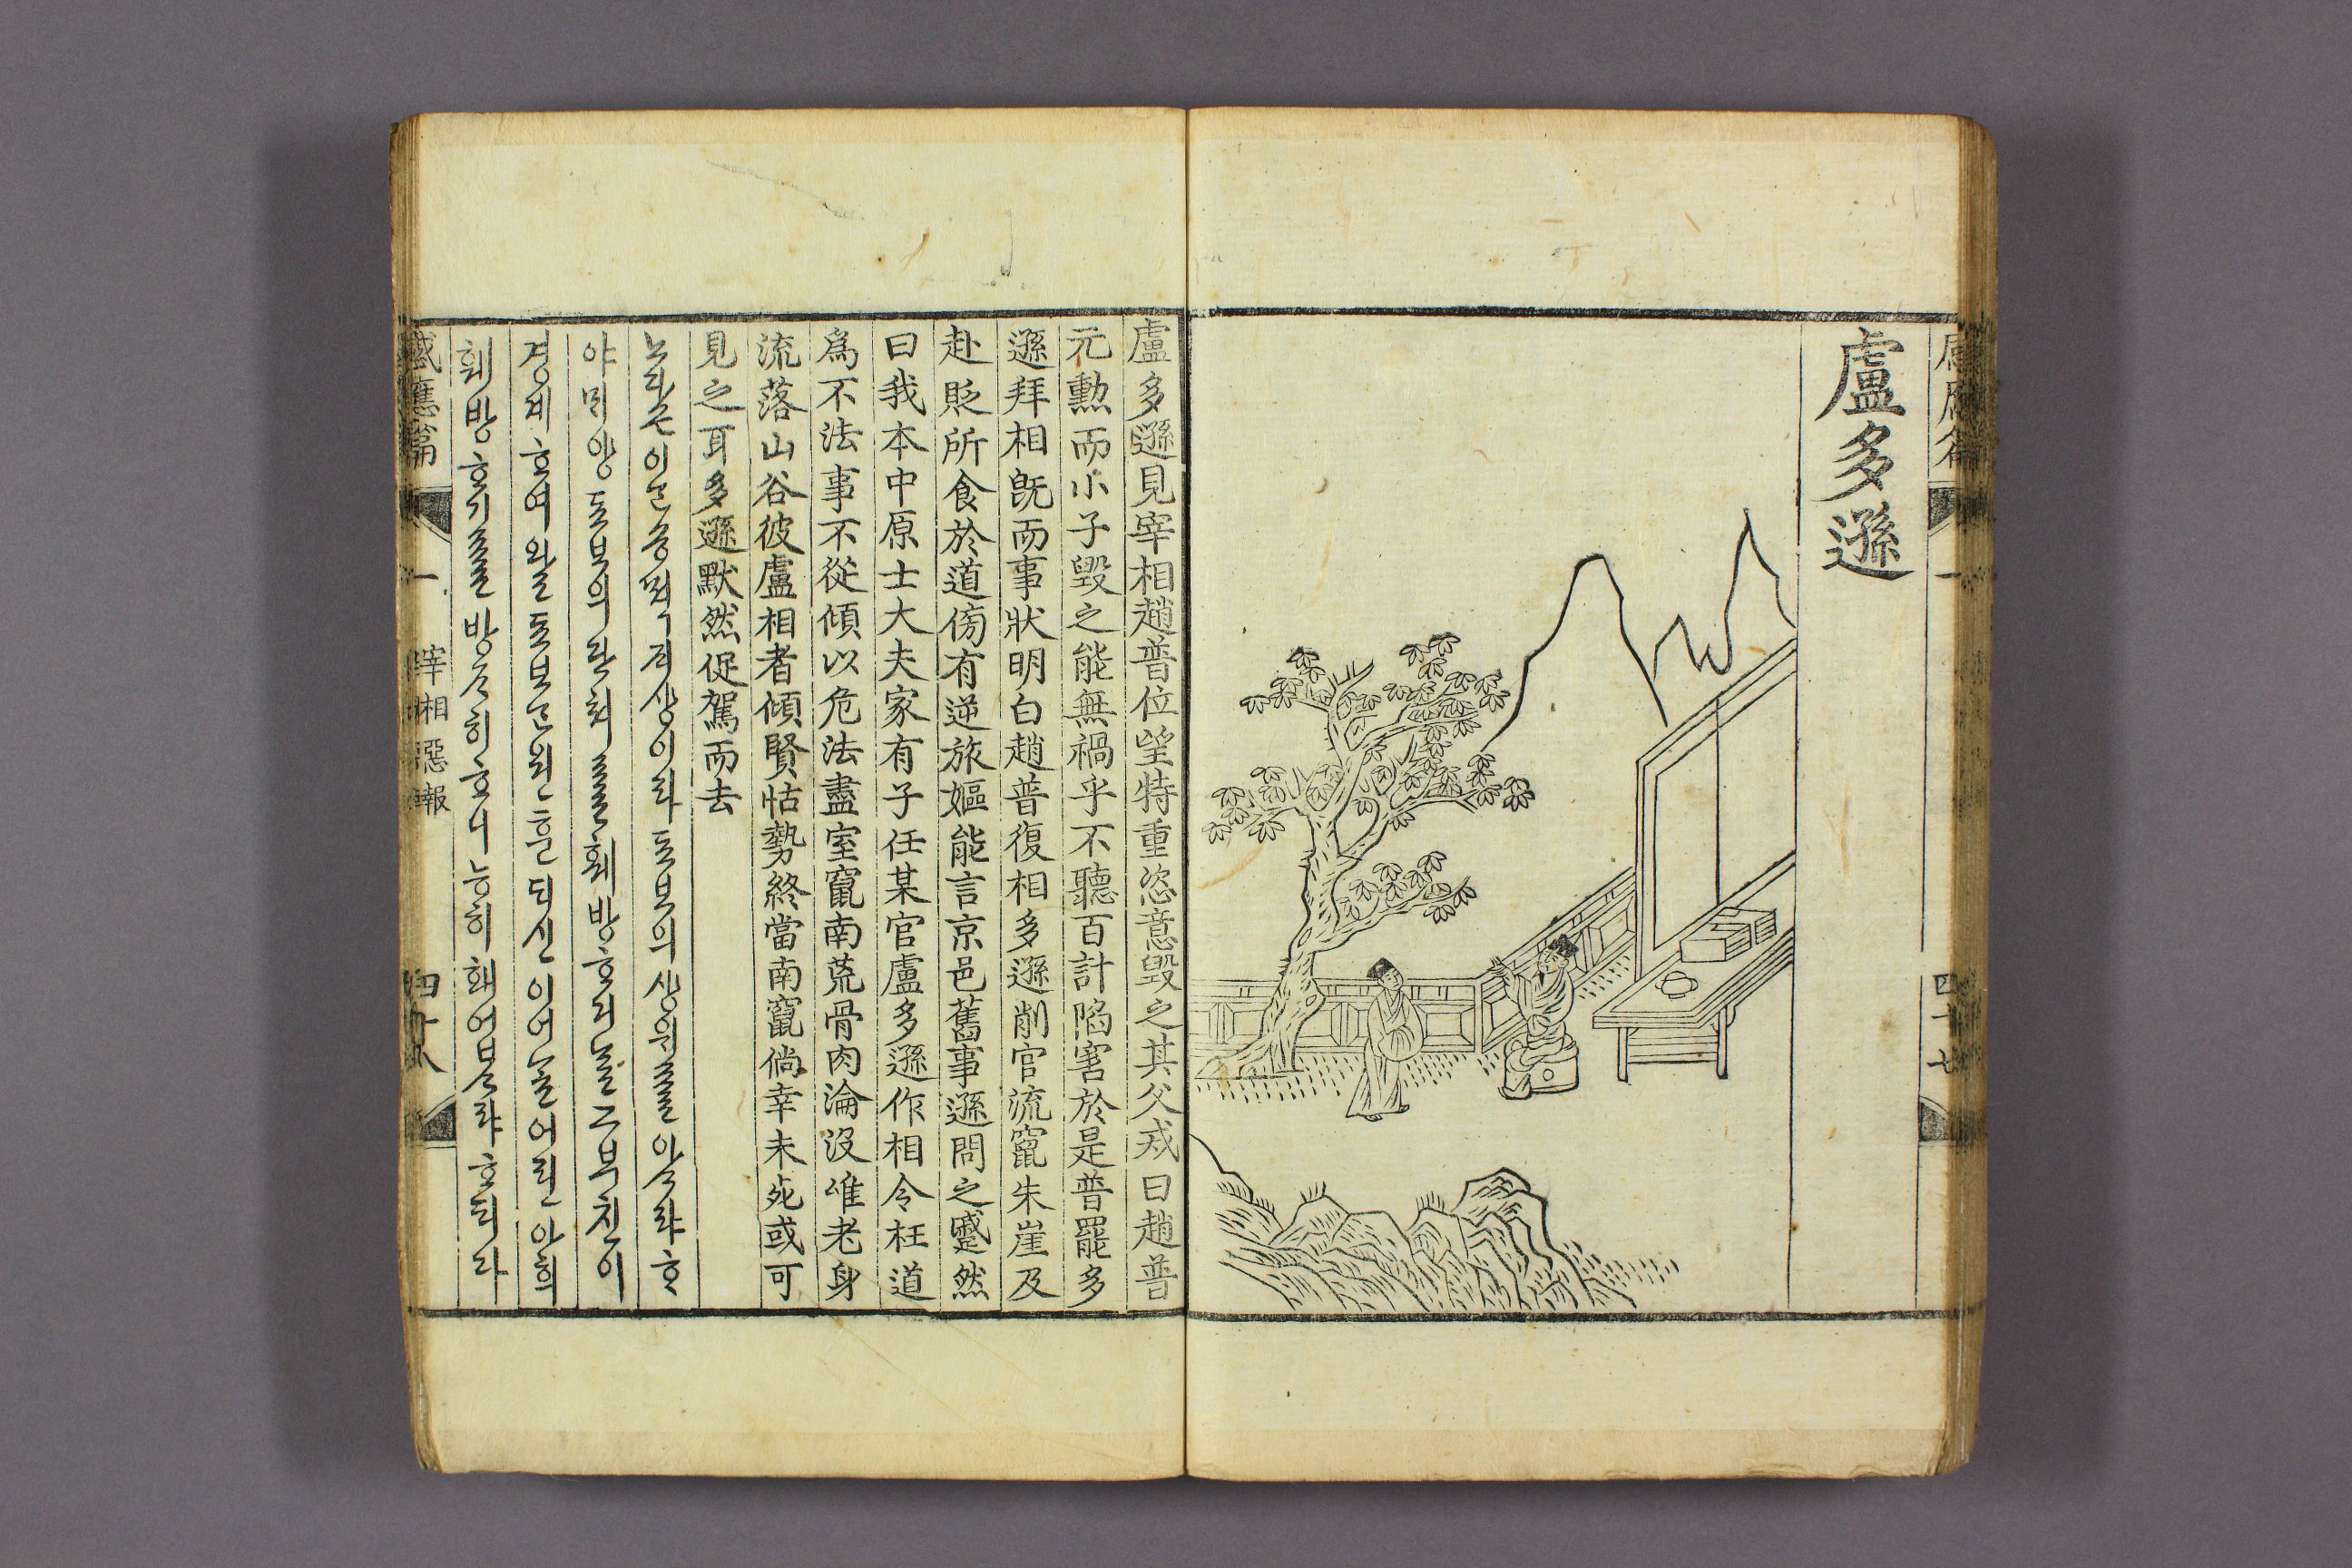 感應篇 一 四十七
盧多遜
盧多遜見宰相趙普位望特重恣意毁之其父戒曰趙普
元勳而小子毁之能無禍乎不聽百計陷害於是普罷多
遜拜相旣而事狀明白趙普復相多遜削官流竄朱崖及
赴貶所食於道傍有逆旅嫗能言京邑舊事遜問之蹙然
曰我本中原士大夫家有子任某官盧多遜作相令枉道
爲不法事不從傾以危法盡室竄南荒骨肉淪沒唯老身
流落山谷彼盧相者傾賢怙勢終當南竄倘幸未死或可
見之耳多遜默然促駕而去
노다손이ᄂᆞᆫ숑ᄯᆡᄌᆡ샹이라됴보의샹위ᄅᆞᆯ아ᄉᆞ랴ᄒᆞ
야ᄆᆡ양됴보의단쳐ᄅᆞᆯ훼방ᄒᆞ거ᄂᆞᆯ그부친이
경계ᄒᆞ여왈됴보ᄂᆞᆫ원훈ᄃᆡ신이어ᄂᆞᆯ어린아ᄒᆡ
훼방ᄒᆞ기ᄅᆞᆯ방ᄌᆞ히ᄒᆞ니능히홰업ᄉᆞ랴ᄒᆞ되다
感應篇 一 宰相惡報 四十八